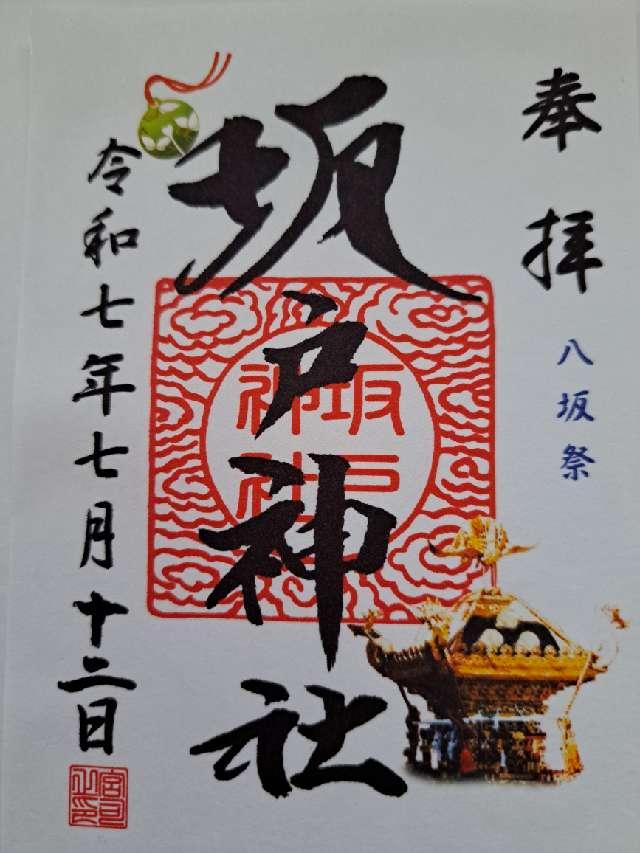 奉拝
八坂祭
坂戸神社
坂戸神社
令和七年七月十二日